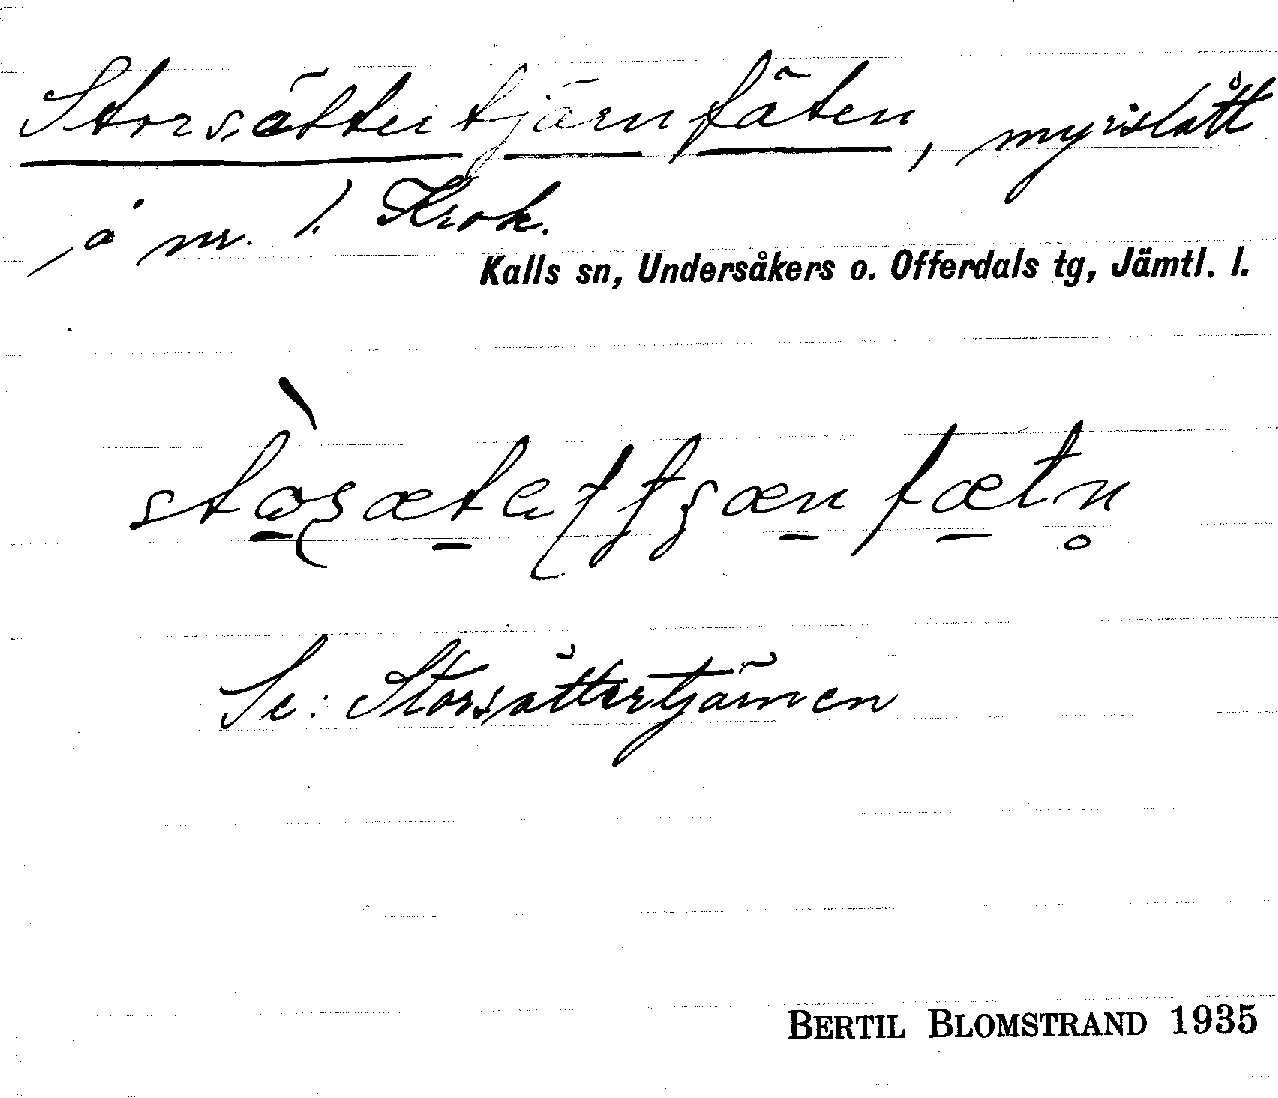 Storsättertjärnfäten, myrslått
på nr. 1. Krok.
Kalls sn, Undersåkers o. Offerdals tg, Jämtl. l.
Se: Storsättertjärnen
BERTIL BLOMSTRAND 1935